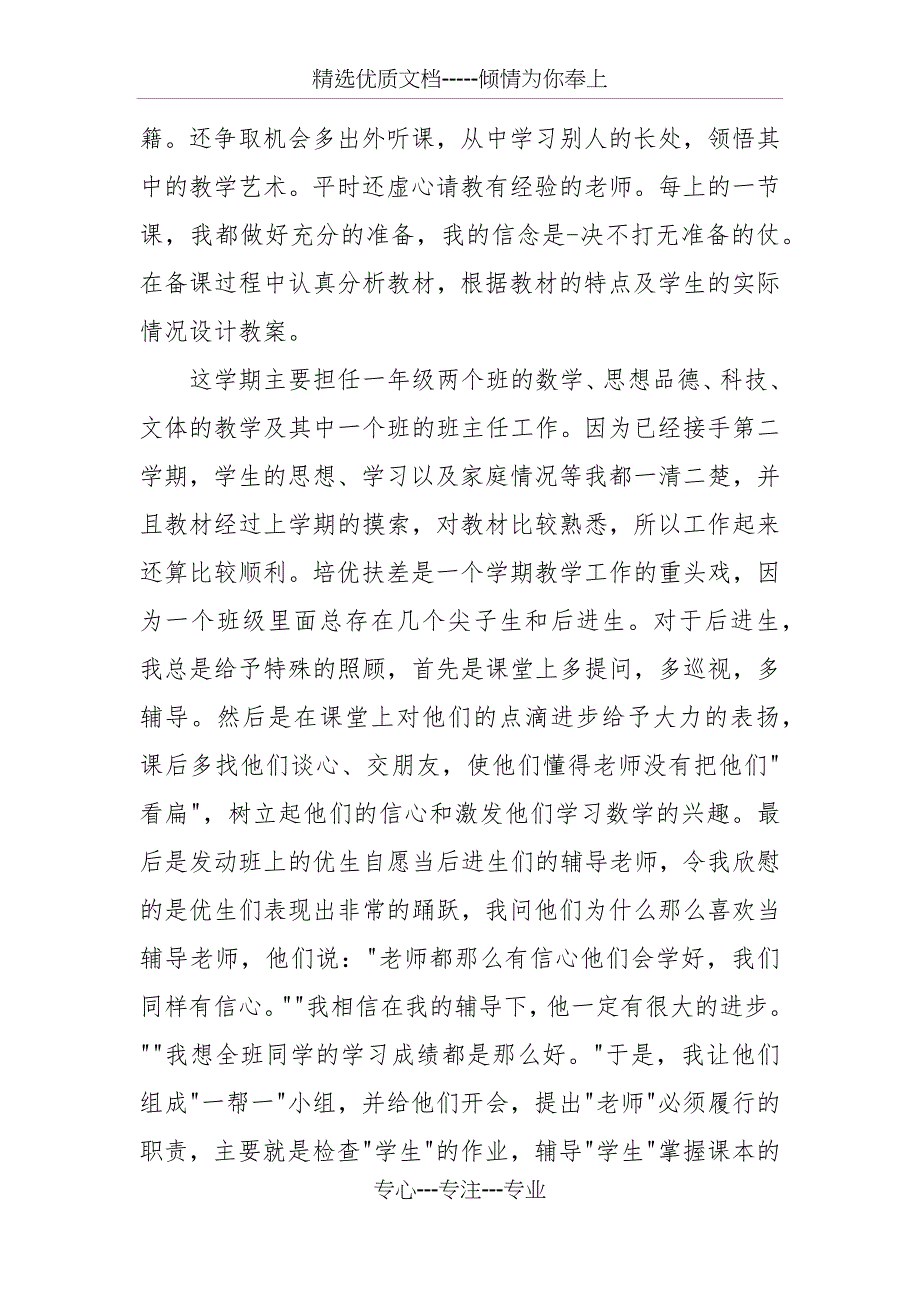 精选优质文档-----倾情为你奉上
籍。还争取机会多出外听课，从中学习别人的长处，领悟其
中的教学艺术。平时还虚心请教有经验的老师。每上的一节
课，我都做好充分的准备，我的信念是-决不打无准备的仗。
在备课过程中认真分析教材，根据教材的特点及学生的实际
情况设计教案。
这学期主要担任一年级两个班的数学、思想品德、科技、
文体的教学及其中一个班的班主任工作。因为已经接手第二
学期，学生的思想、学习以及家庭情况等我都一清二楚，并
且教材经过上学期的摸索，对教材比较熟悉，所以工作起来
还算比较顺利。培优扶差是一个学期教学工作的重头戏，因
为一个班级里面总存在几个尖子生和后进生。对于后进生，
我总是给予特殊的照顾，首先是课堂上多提问，多巡视，多
辅导。然后是在课堂上对他们的点滴进步给予大力的表扬，
课后多找他们谈心、交朋友，使他们懂得老师没有把他们"
看扁"，树立起他们的信心和激发他们学习数学的兴趣。最
后是发动班上的优生自愿当后进生们的辅导老师，令我欣慰
的是优生们表现出非常的踊跃，我问他们为什么那么喜欢当
辅导老师，他们说："老师都那么有信心他们会学好，我们
同样有信心。""我相信在我的辅导下，他一定有很大的进步。
""我想全班同学的学习成绩都是那么好。"于是，我让他们
组成"一帮一"小组，并给他们开会，提出"老师"必须履行的
职责，主要就是检查"学生"的作业，辅导"学生"掌握课本的
专心---专注---专业